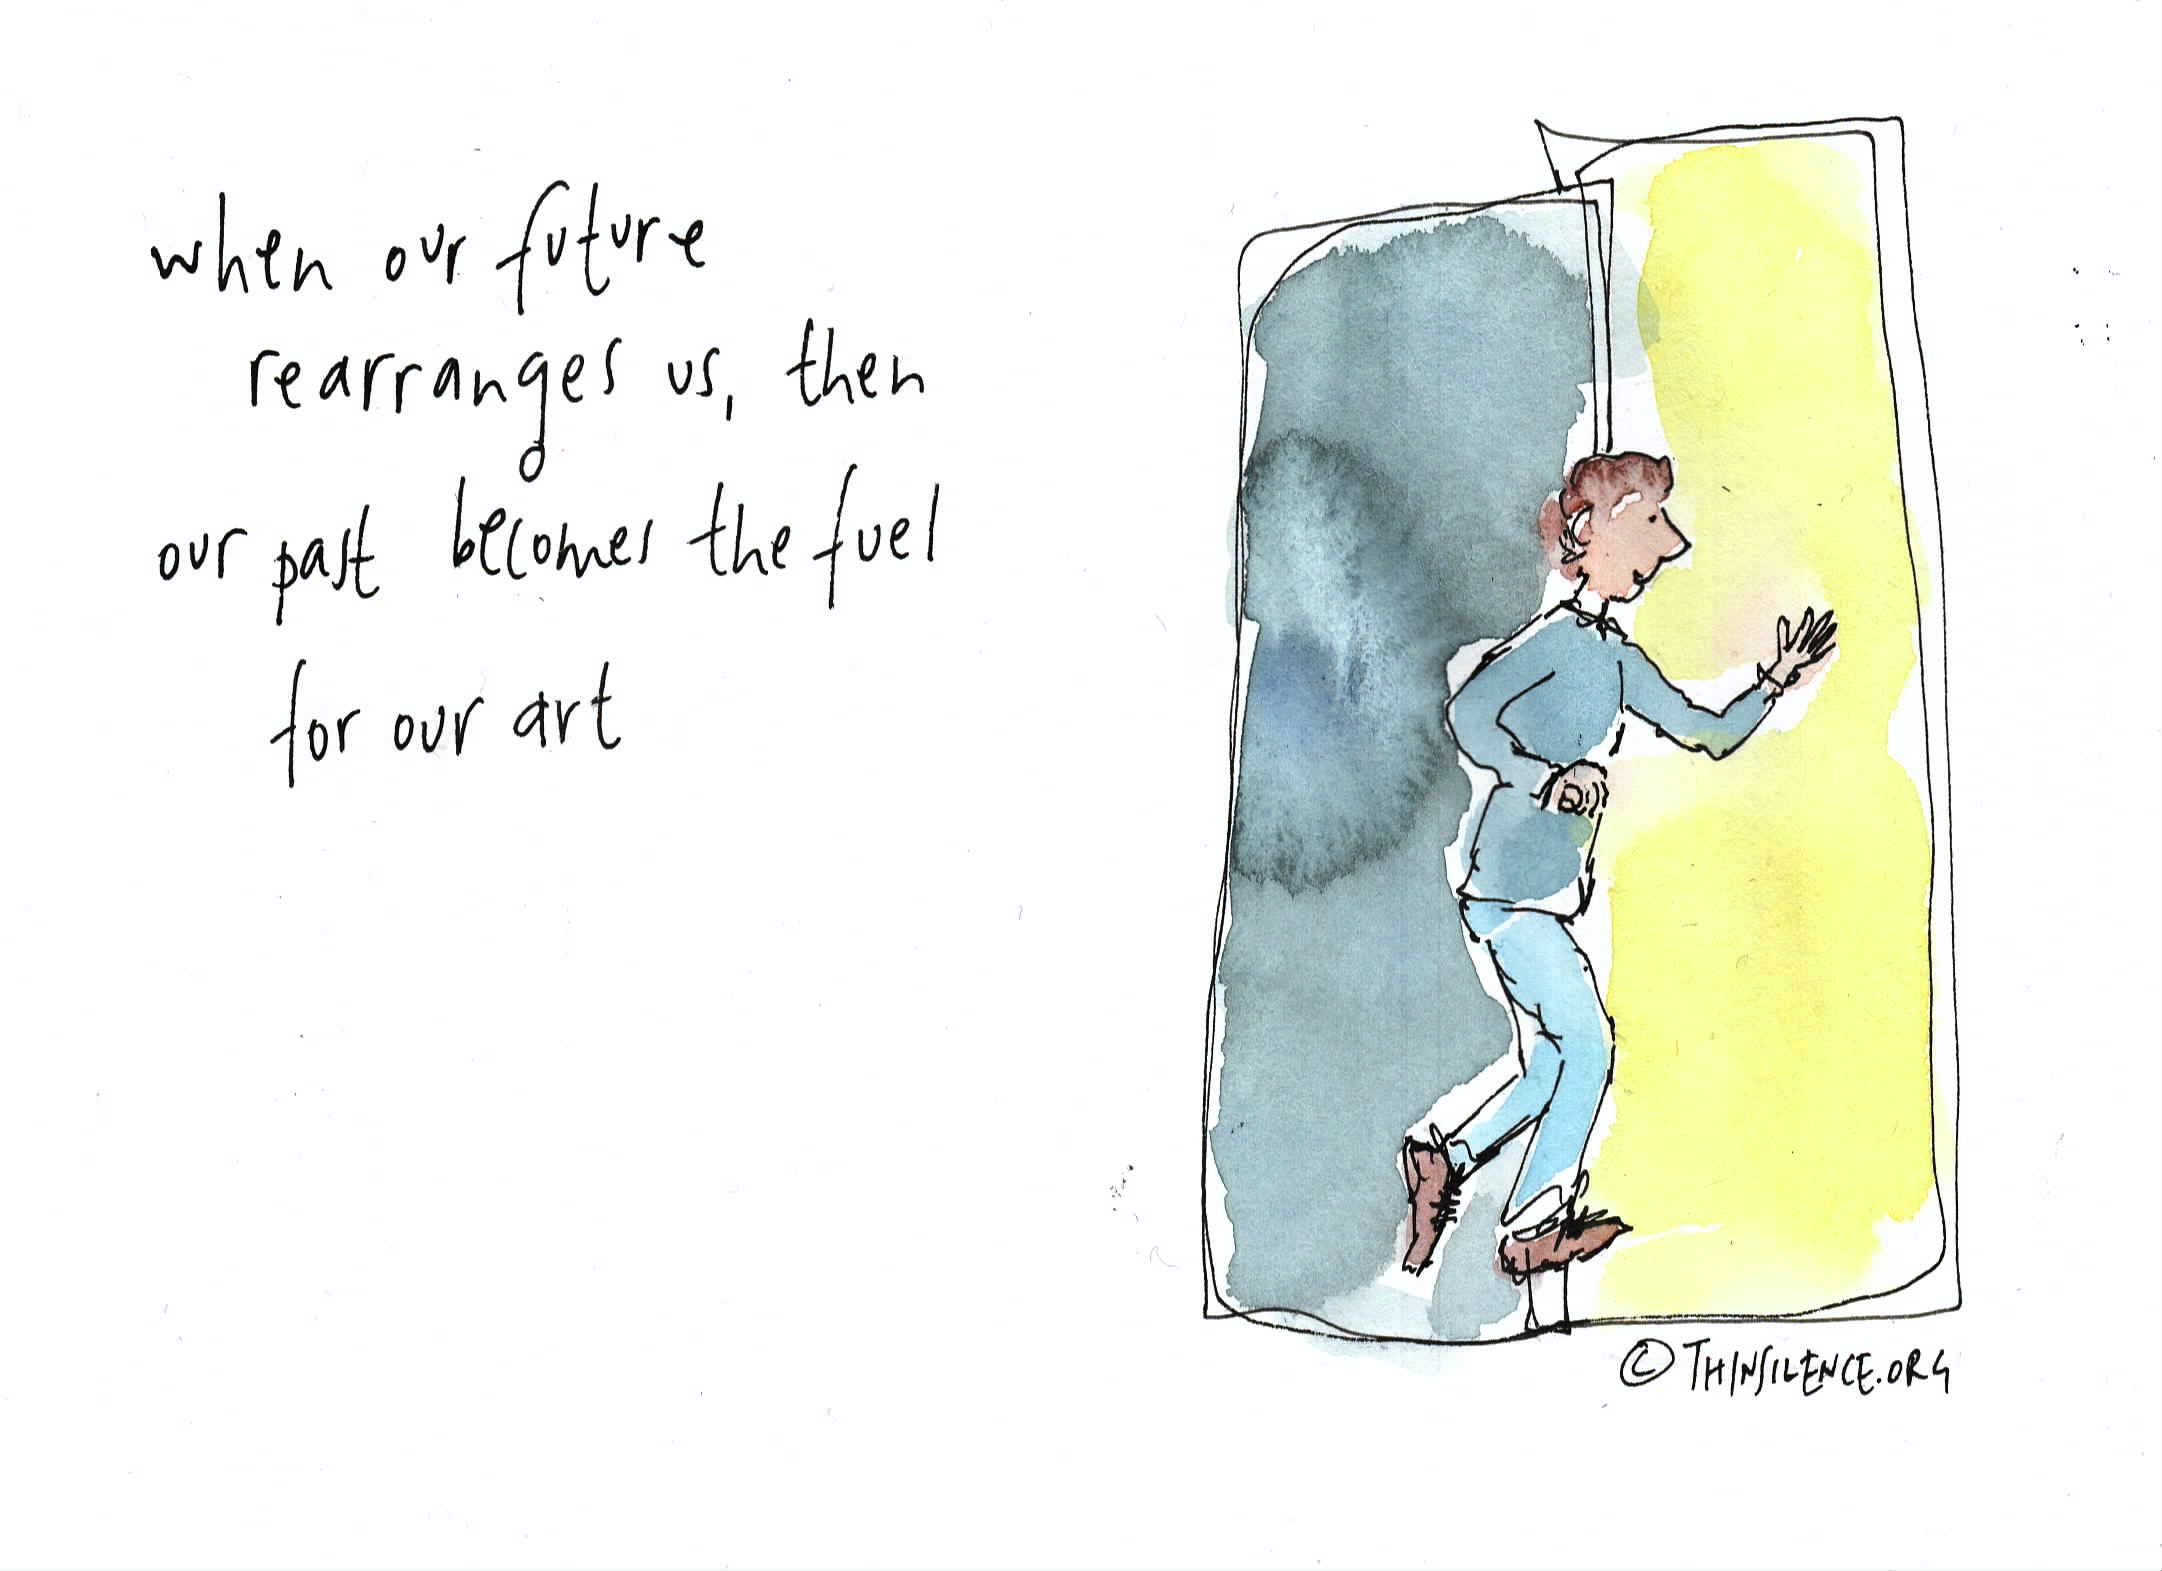 when our future
rearranges us, then
our past becomes the fuel
for our art
© THINSILENCE.ORG